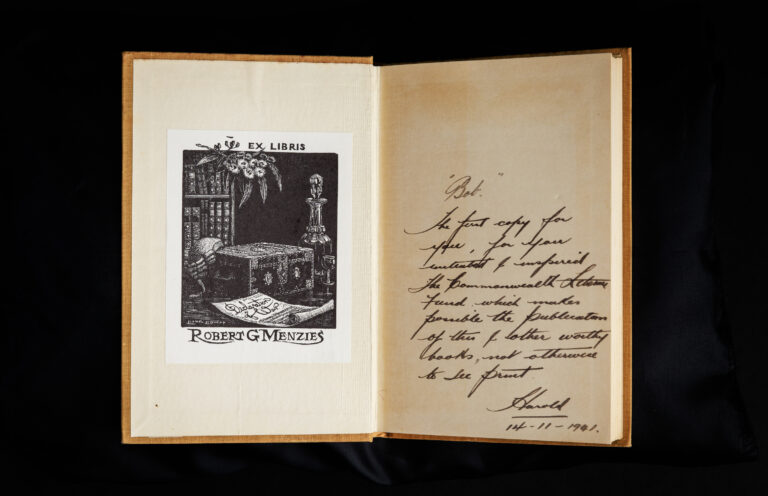 EX LIBRIS
Declaration
of War
ROBERT G MENZIES
"Bob."
The first copy for
you, for your
interest & inspired
the Commonwealth Literary
Fund which makes
possible the publication
of this & other worthy
books, not otherwise
to see print
Harold
14-11-1941.